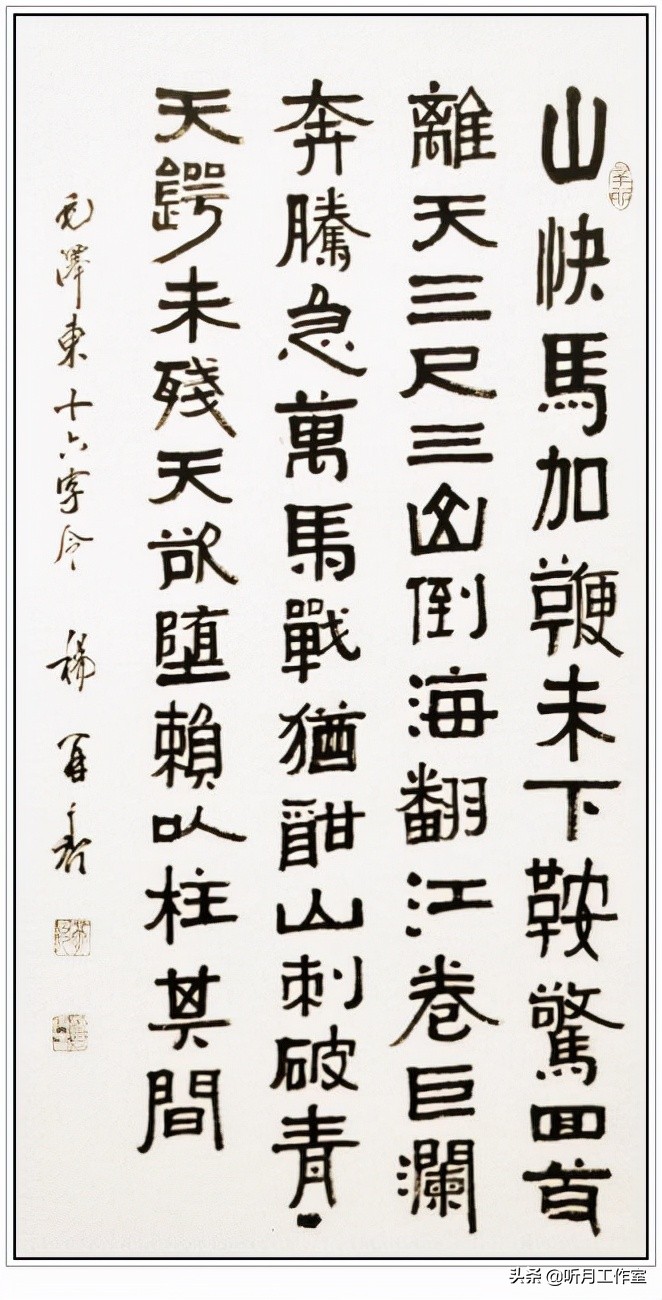 山快馬加鞭未下鞍驚回首
離天三尺三山倒海翻江卷巨瀾
奔騰急萬馬戰猶酣山刺破青
天鍔未殘天欲墮賴以柱其間
毛澤東十六字令 楊再春
头条 @听月工作室